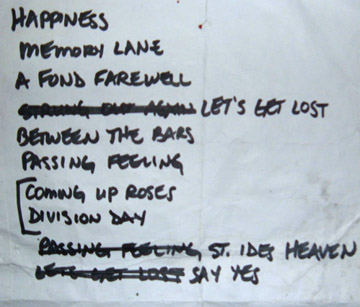 HAPPINESS
MEMORY LANE
A FOND FAREWELL
STRUNG OUT AGAIN LET'S GET LOST
BETWEEN THE BARS
PASSING FEELING
COMING UP ROSES
DIVISION DAY
PASSING FEELING, ST. IDES HEAVEN
LET'S GET LOST SAY YES